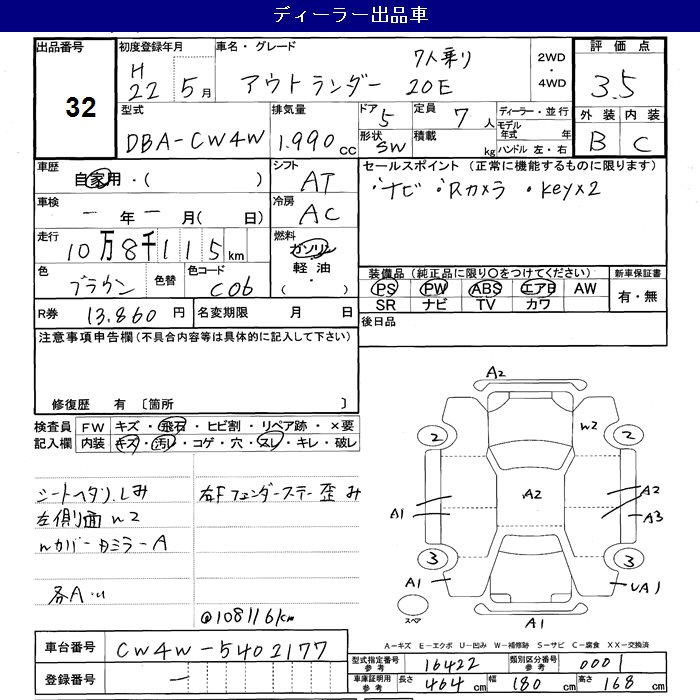 ディーラー出品車
出品番号 32
初度登録年月 H22 5月
車名・グレード アウトランダー 7人乗り 20E
2WD・4WD
評価点 3.5
外装 B 内装 C
型式 DBA-CW4W
排気量 1.990 cc
ドア 5 形状 SW
定員 7人 積載 kg
ディーラー・並行
モデル年式 年
ハンドル 左・右
車歴 自家用・( )
シフト AT
セールスポイント (正常に機能するものに限ります)
・ナビ ・Rカメラ ・keyx2
車検 ー年ー月( 日)
冷房 AC
走行 10万8千115km
燃料 ガソリン・軽油・( )
色 ブラウン 色替 色コード C06
装備品 (純正品に限り○をつけてください)
PS PW ABS エアB AW
SR ナビ TV カワ
新車保証書 有・無
R券 13.860円 名変期限 月 日
後日品
注意事項申告欄(不具合内容等は具体的に記入して下さい)
修復歴 有 〔箇所 〕
検査員記入欄 FW キズ・飛石・ヒビ割・リペア跡・×要
内装 キズ・汚レ・コゲ・穴・スレ・キレ・破レ
シートヘタリ.しみ
左側面 w2
wカバー Dミラー A
各A.u
右Fフェンダーステー歪み
@108116km
A2
2 w2 2
A2
A1 A2
A3
3 3
A1 UA1
スペア
A1
A-キズ E-エクボ U-凹み W-補修跡 S-サビ C-腐食 XX-交換済
車台番号 CW4W-5402177
型式指定番号 参考 16422 類別区分番号 参考 0001
登録番号 ー
車庫証明用 参考 長さ 464cm 幅 180cm 高さ 168cm